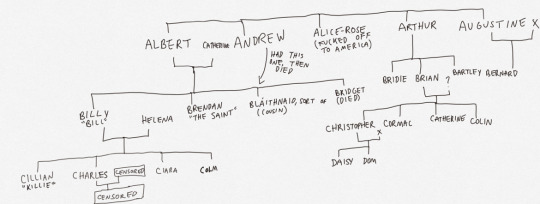 ALBERT CATHERINE ANDREW ALICE-ROSE ARTHUR AUGUSTINE X
(FUCKED OFF
TO AMERICA)
HAD THIS
ONE, THEN
DIED
BRIDIE BRIAN ? BARTLEY BERNARD
BILLY
"BILL"
HELENA
BRENDAN
"THE SAINT"
BLÁITHNAID, SORT OF
(COUSIN)
BRIDGET
(DIED)
CHRISTOPHER X CORMAC CATHERINE COLIN
DAISY DOM
CILLIAN
"KILLIE"
CHARLES CENSORED CIARA COLM
CENSORED